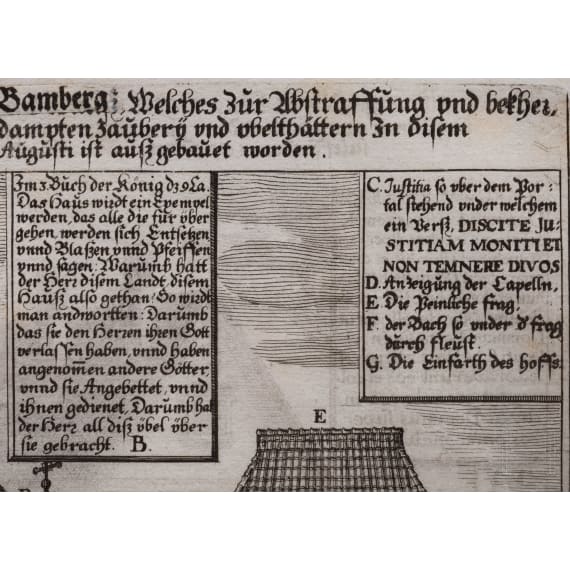 Bamberg: Welches Zür Abstraffung vnd bekher,
dampten Zaübery vnd vbelthättern Jn disem
Augusti ist außgebauet worden.
Jm 3. Buch der König dz 9 Ca.
Das Haus wirdt ein Exempel
werden, das alle die für vber
gehen, werden sich Entsetzen
vnnd Blaßen vnnd Pfeiffen
vnnd sagen. Warumb hatt
der Herz disem Landt disem
Hauß also gethan: So wirdt
man andwortten: Darumb
das sie den Herzen ihren Gott
verlassen haben, vnnd haben
angenom̄en andere Götter,
vnnd sie Angebettet, vnnd
ihnen gedienet, Darumb hat
der Herz all diß vbel vber
sie gebracht. B.
C. Justitia so vber dem Por-
tal stehend vnder welchem
ein Verß, DISCITE JU-
STITIAM MONITI ET
NON TEMNERE DIVOS
D. Anzeigung der Capelln,
E Die Peinliche frag,
F. der Bach so vnder d' frag
dürch fleust.
G. Die Einfarth des hoffs.
E